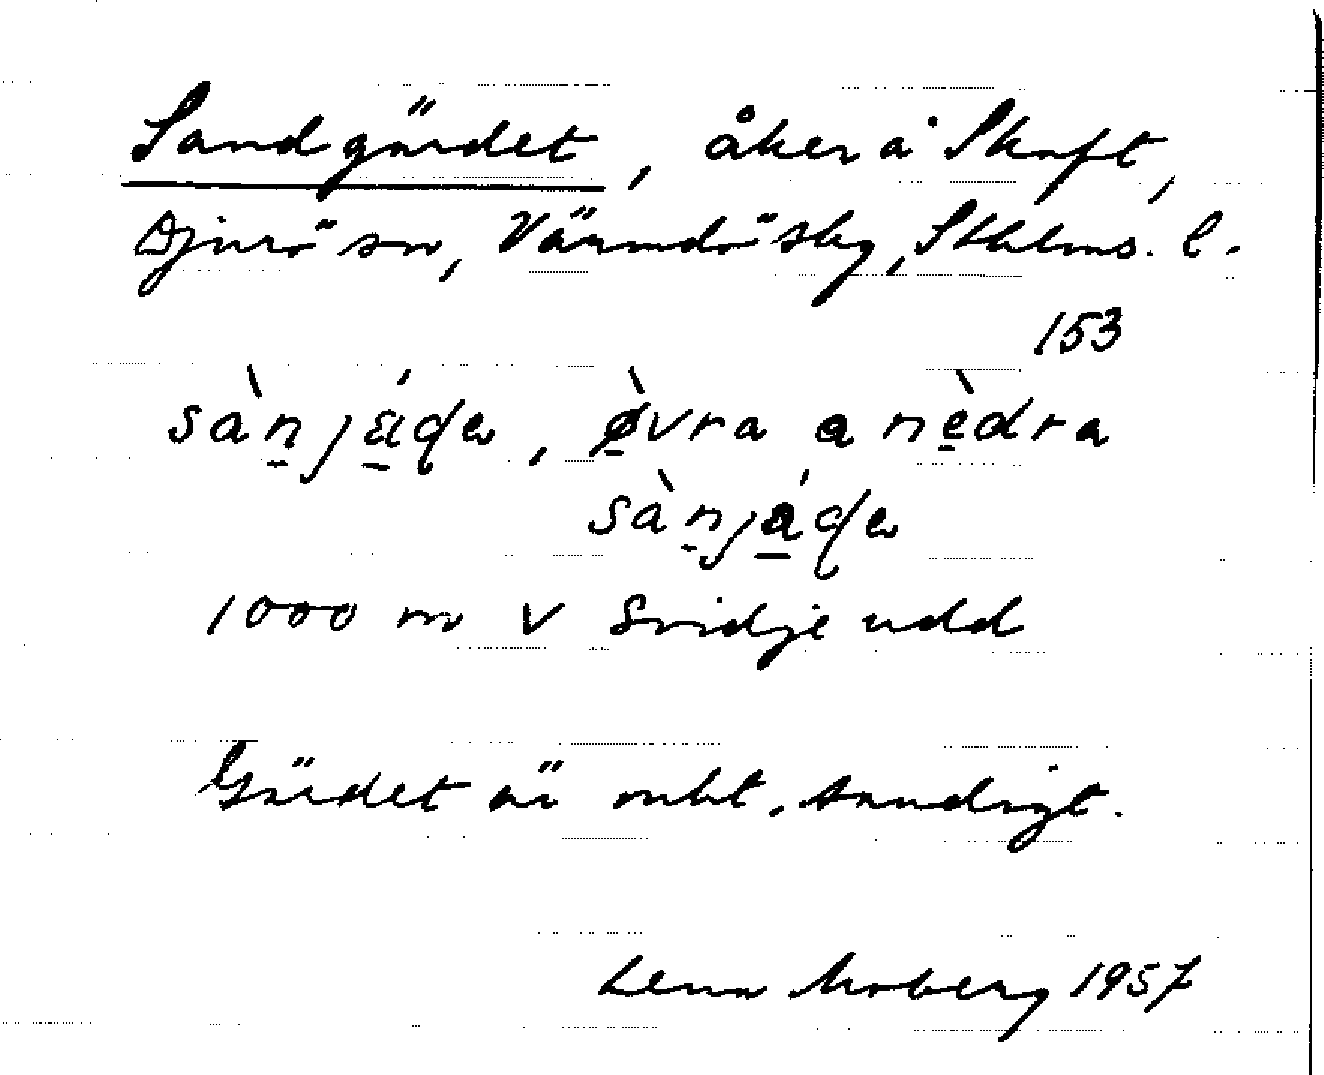 Sandgärdet, åker å Skaft,
Djurö sn, Värmdö skg, Sthlms. l.
153
sànjäɖe, øvra a nèdra
sànjáɖe
1000 m V Svidje udd
Gärdet är mkt. sandigt.
Lena Moberg 1957